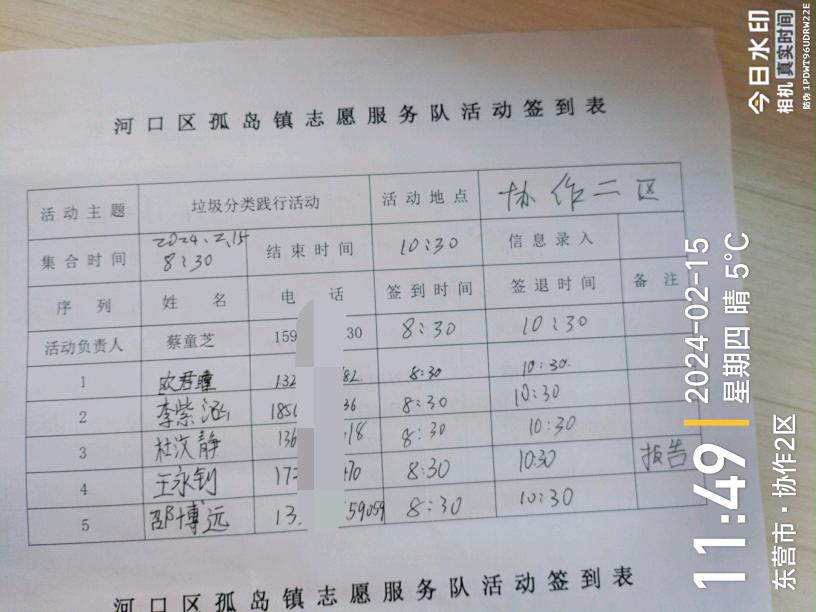 河口区孤岛镇志愿服务队活动签到表
活动主题 垃圾分类践行活动 活动地点 协作二区
集合时间 2024.2.15 8:30 结束时间 10:30 信息录入
序列 姓名 电话 签到时间 签退时间 备注
活动负责人 蔡童芝 159 30 8:30 10:30
1 欧君瞳 132 82. 8:30 10:30.
2 李紫涵 185 36 8:30 10:30
3 杜汶静 136 18 8:30 10:30
4 王永钊 17 70 8:30 10:30 报告
5 邵博远 13. 59059 8:30 10:30
河口区孤岛镇志愿服务队活动签到表
今日水印
相机 真实时间
防伪 1PDWT96UDRW22E
11:49
2024-02-15
星期四 晴 5°C
东营市·协作2区